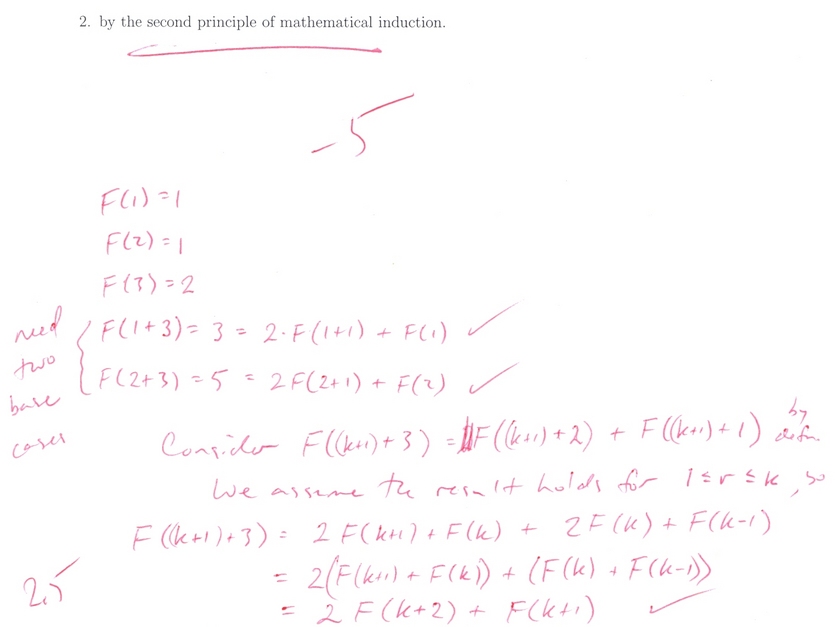 2. by the second principle of mathematical induction.
-5
F(1) = 1
F(2) = 1
F(3) = 2
need two base cases
F(1+3) = 3 = 2·F(1+1) + F(1) ✓
F(2+3) = 5 = 2F(2+1) + F(2) ✓
Consider F((k+1)+3) = F((k+1)+2) + F((k+1)+1) by defn.
We assume the result holds for 1 ≤ r ≤ k, so
F((k+1)+3) = 2F(k+1) + F(k) + 2F(k) + F(k-1)
= 2(F(k+1) + F(k)) + (F(k) + F(k-1))
= 2F(k+2) + F(k+1) ✓